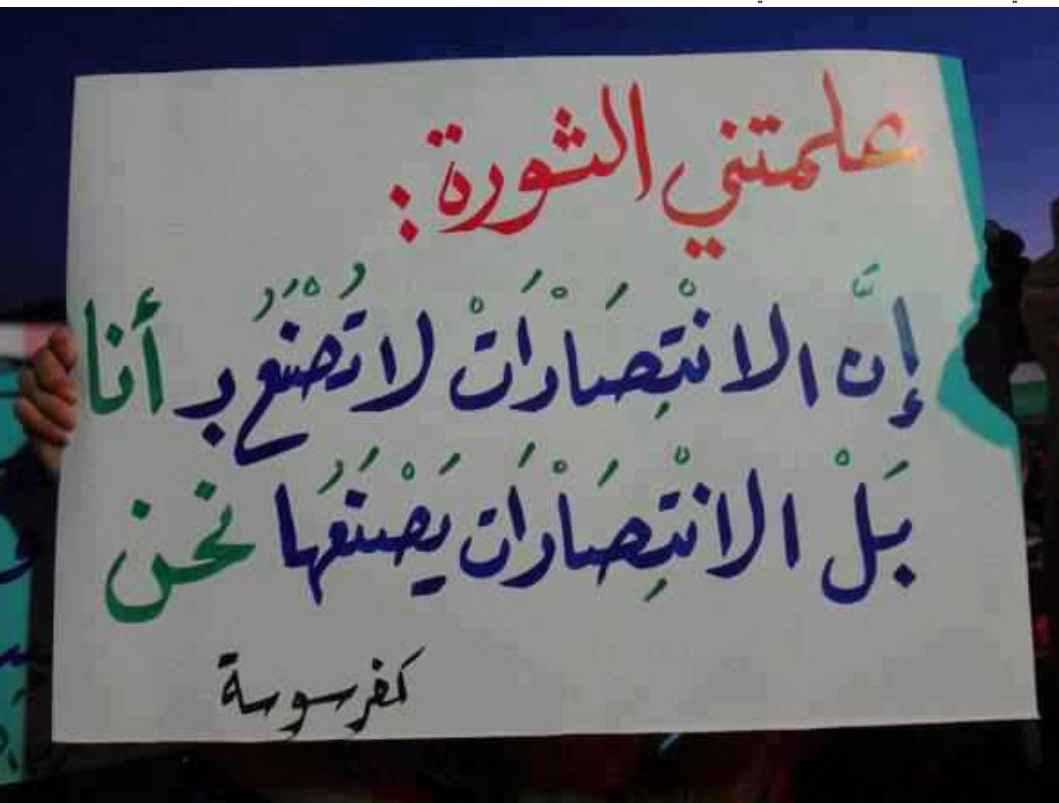 علمتني الثورة :
إنَّ الانْتِصَاْرَاْتْ لا تُصْنَعُ بِـ أنا
بَلْ الانْتِصَاْرَاْت يَصْنَعُهَا نحن
كفرسوسة